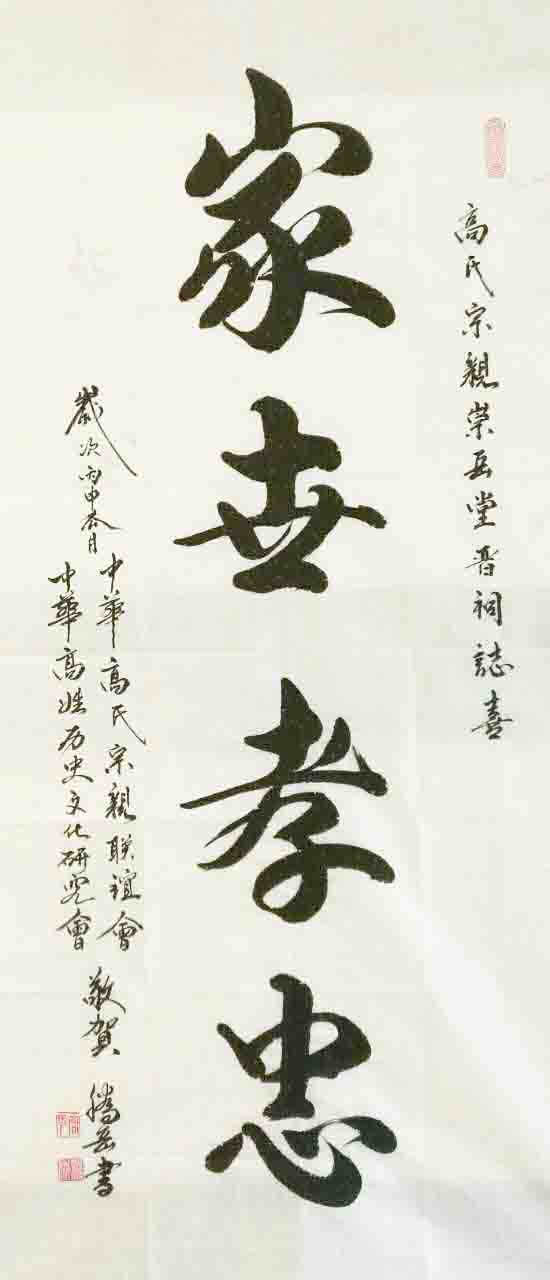 高氏宗親榮岳堂晋祠誌喜
家世孝忠
歲次丙申月
中華高氏宗親联誼會
中華高姓历史文化研究會
敬賀
腾岳書